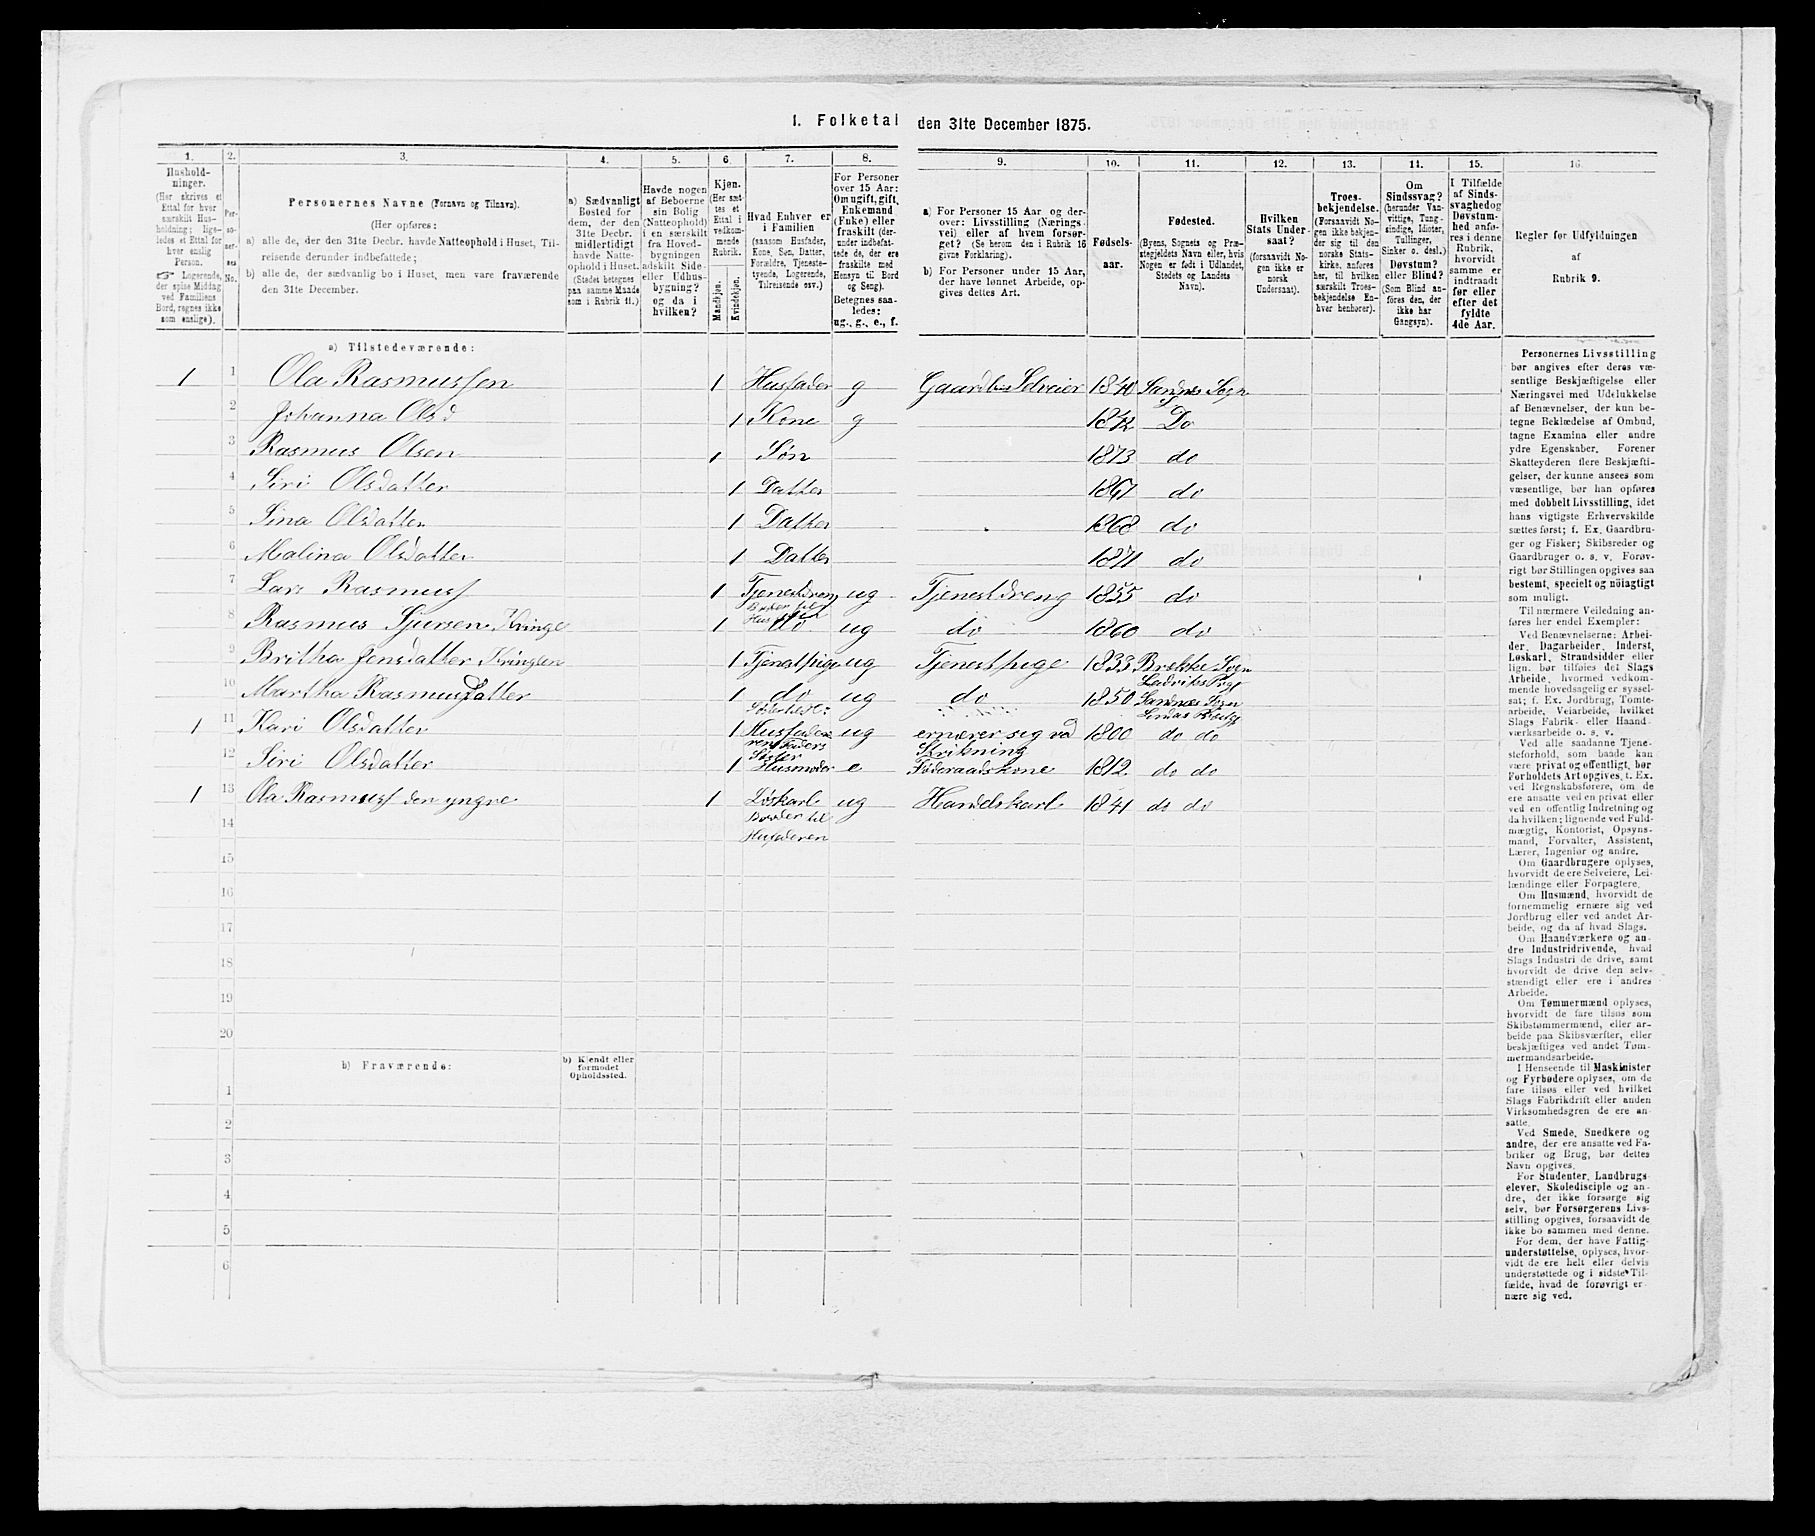 1. Folketal den 31te December 1875.
1. 2. 3. 4. 5. 6. 7. 8. 9. 10. 11. 12. 13. 14. 15. 16.
Hushold-
ninger.
(Her skrives et
Ettal for hver
særskilt Hus-
holdning; lige-
ledes et Ettal for
hver enslig
Person.
☞ Logerende,
der spise Middag
ved Familiens
Bord, regnes ikke
som enslige).
Per-
so-
ner-
nes
No.
Personernes Navne (Fornavn og Tilnavn).
(Her opføres:
a) alle de, der den 31te Decbr. havde Natteophold i Huset, Til-
reisende derunder indbefattede;
b) alle de, der sædvanlig bo i Huset, men vare fraværende
den 31te December.
a) Sædvanligt
Bosted for
dem, der den
31te Decbr.
midlertidigt
havde Natte-
ophold i Huset.
(Stedet betegnes
paa samme Maade
som i Rubrik 11.)
Havde nogen
af Beboerne
sin Bolig
(Natteophold)
i en særskilt
fra Hoved-
bygningen
adskilt Side-
eller Udhus-
bygning?
og da i
hvilken?
Kjøn.
(Her sæt-
tes et
Ettal i
vedkom-
mende
Rubrik.
Mandkjøn.
Kvindekjøn.
Hvad Enhver er
i Familien
(saasom Husfader,
Kone, Søn, Datter,
Forældre, Tjeneste-
tyende, Logerende,
Tilreisende osv.)
For Personer
over 15 Aar:
Om ugift, gift,
Enkemand
(Enke) eller
fraskilt (der-
under indbefat-
tede de, der ere
fraskilte med
Hensyn til Bord
og Seng).
Betegnes saa-
ledes:
ug., g., e., f.
a) For Personer 15 Aar og der-
over: Livsstilling (Nærings-
vei) eller af hvem forsør-
get? (Se herom den i Rubrik 16
givne Forklaring).
b) For Personer under 15 Aar,
der have lønnet Arbeide, op-
gives dettes Art.
Fødsels-
aar.
Fødested.
(Byens, Sognets og Præ-
stegjeldets Navn eller, hvis
Nogen er født i Udlandet,
Stedets og Landets
Navn).
Hvilken
Stats Under-
saat?
(forsaavidt No-
gen ikke er
norsk
Undersaat).
Troes-
bekjendelse.
(Forsaavidt No-
gen ikke bekjen-
der sig til den
norske Stats-
kirke, anføres
her, til hvilken
særskilt Troes-
bekjendelse En-
hver henhører).
Om
Sindssvag?
(herunder Van-
vittige, Tung-
sindige, Idioter,
Tullinger,
Sinker o. desl.)
Døvstum?
eller Blind?
(Som Blind an-
føres den, der
ikke har
Gangsyn).
I Tilfælde
af Sinds-
svaghed og
Døvstum-
hed anfø-
res i denne
Rubrik,
hvorvidt
samme er
indtraadt
før eller
efter det
fyldte
4de Aar.
Regler for Udfyldningen
af
Rubrik 9.
a) Tilstedeværende:
1 1 Ola Rasmussen 1 Husfader g Gaardb. Selveier 1840 Sandnes Sogn
2 Johanna Olsd 1 Kone g 1842 Do
3 Rasmus Olsen 1 Søn 1873 do
4 Siri Olsdatter 1 Datter 1867 do
5 Sina Olsdatter 1 Datter 1868 do
6 Malina Olsdatter 1 Datter 1871 do
7 Lars Rasmuss 1 Tjenestdreng ug Tjenestdreng 1855 do
Broder til
8 Rasmus Sjursen Kringle 1 do ug do 1860 do
9 Britha Jensdatter Kringlen 1 Tjenestpige ug Tjenestpige 1833 Brekke Sogn
Ladviks Prgj
10 Martha Rasmusdatter 1 do ug do 1850 Sandnes Sogn
1 11 Kari Olsdatter 1 Husfade- ug ernærer sig ved 1800 do do
rens Faders
Søster
Strikning
12 Siri Olsdatter 1 Husmoder e Føderaadskone 1812. do do
1 13 Ola Rasmuss den yngre 1 Løskarl ug Handelskarl 1841 do do
Broder til
Husfaderen
14
15
16
17
18
19
20
b) Fraværende:
b) Kjendt eller
formodet
Opholdssted.
1
2
3
4
5
6
Personernes Livsstilling
bør angives efter deres væ-
sentlige Beskjæftigelse eller
Næringsvei med Udelukkelse
af Benævnelser, der kun be-
tegne Beklædelse af Ombud,
tagne Examina eller andre
ydre Egenskaber. Forener
Skatteyderen flere Beskjæfti-
gelser, der kunne ansees som
væsentlige, bør han opføres
med dobbelt Livsstilling, idet
hans vigtigste Erhvervskilde
sættes først; f. Ex. Gaardbru-
ger og Fisker; Skibsreder og
Gaardbruger o. s. v. Forøv-
rigt bør Stillingen opgives saa
bestemt, specielt og nöiagtigt
som muligt.
Til nærmere Veiledning an-
føres her endel Exempler:
Ved Benævnelserne: Arbei-
der, Dagarbeider, Inderst,
Løskarl, Strandsidder eller
lign. bør tilføies det Slags
Arbeide, hvormed vedkom-
mende hovedsagelig er syssel-
sat; f. Ex. Jordbrug, Tomte-
arbeide, Veiarbeide, hvilket
Slags Fabrik- eller Haand-
værksarbeide o. s. v.
Ved alle saadanne Tjene-
steforhold, som baade kan
være privat og offentligt, bør
Forholdets Art opgives, f. Ex.
ved Regnskabsførere, om de
ere ansatte ved en privat eller
ved en offentlig Indretning og
da hvilken; lignende ved Fuld-
mægtig, Kontorist, Opsyns-
mand, Forvalter, Assistent,
Lærer, Ingeniør og andre.
Om Gaardbrugere oplyses,
hvorvidt de ere Selveiere, Lei-
lændinge eller Forpagtere.
Om Husmænd, hvorvidt de
fornemmelig ernære sig ved
Jordbrug eller ved andet Ar-
beide, og da af hvad Slags.
Om Haandværkere og an-
dre Industridrivende, hvad
Slags Industri de drive, samt
hvorvidt de drive den selv-
stændigt eller ere i andres
Arbeide.
Om Tømmermænd oplyses,
hvorvidt de fare tilsøs som
Skibstømmermænd, eller ar-
beide paa Skibsværfter, eller
beskjæftiges ved andet Tøm-
mermandsarbeide.
I Henseende til Maskinister
og Fyrbødere oplyses, om de
fare tilsøs eller ved hvilket
Slags Fabrikdrift eller anden
Virksomhedsgren de ere an-
satte.
Ved Smede, Snedkere og
andre, der ere ansatte ved Fa-
briker og Brug, bør dettes
Navn opgives.
For Studenter, Landbrugs-
elever, Skoledisciple og an-
dre, der ikke forsørge sig
selv, bør Forsørgerens Livs-
stilling opgives, forsaavidt de
ikke bo sammen med denne.
For dem, der have Fattig-
understøttelse, oplyses, hvor-
vidt de ere helt eller delvis
understøttede og i sidste Til-
fælde, hvad de forøvrigt er-
nære sig ved.